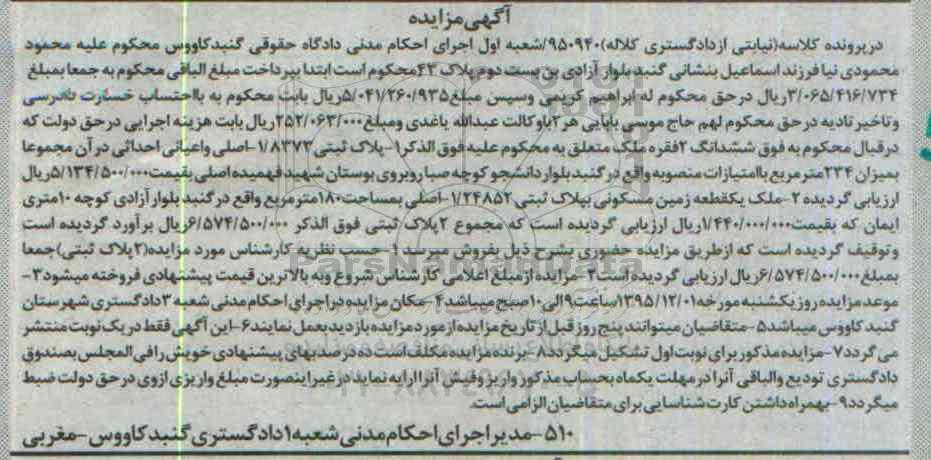 آگهی مزایده
در پرونده کلاسه (نیابتی از دادگستری کلاله) ۹۵۰۹۴۰/شعبه اول اجرای احکام مدنی دادگاه حقوقی گنبد کاووس محکوم علیه محمود
محمودی نیا فرزند اسماعیل بنشانی گنبد بلوار آزادی بن بست دوم پلاک ۴۳ محکوم است ابتدا بپرداخت مبلغ الباقی محکوم به جمعا بمبلغ
۳/۰۶۵/۴۱۶/۷۳۴ ریال در حق محکوم له ابراهیم کریمی وسپس مبلغ ۵/۰۴۱/۲۶۰/۹۳۵ ریال بابت محکوم به بااحتساب خسارت دادرسی
و تاخیر تادیه در حق محکوم لهم حاج موسی بابایی هر ۲ با وکالت عبدالله یاغدی و مبلغ ۲۵۲/۰۶۳/۰۰۰ ریال بابت هزینه اجرایی در حق دولت که
در قبال محکوم به فوق ششدانگ ۲ فقره ملک متعلق به محکوم علیه فوق الذکر ۱-پلاک ثبتی ۱/۸۳۷۳-اصلی واعیانی احداثی در آن مجموعا
بمیزان ۲۳۴ متر مربع باامتیازات منصوبه واقع در گنبد بلوار دانشجو کوچه صبا روبروی بوستان شهید فهمیده اصلی بقیمت ۵/۱۳۴/۵۰۰/۰۰۰ ریال
ارزیابی گردیده ۲-ملک یکقطعه زمین مسکونی بپلاک ثبتی ۱/۲۴۸۵۲-اصلی بمساحت ۱۸۰ متر مربع واقع در گنبد بلوار آزادی کوچه ۱۰ متری
ایمان که بقیمت ۱/۴۴۰/۰۰۰/۰۰۰ ریال ارزیابی گردیده است که مجموع ۲ پلاک ثبتی فوق الذکر ۶/۵۷۴/۵۰۰/۰۰۰ ریال برآورد گردیده است
و توقیف گردیده است که از طریق مزایده حضوری بشرح ذیل بفروش میرسد ۱-حسب نظریه کارشناس مورد مزایده (۲ پلاک ثبتی) جمعا
بمبلغ ۶/۵۷۴/۵۰۰/۰۰۰ ریال ارزیابی گردیده است ۲-مزایده از مبلغ اعلامی کارشناس شروع و به بالاترین قیمت پیشنهادی فروخته میشود ۳-
موعد مزایده روز یکشنبه مورخه ۱۳۹۵/۱۲/۰۱ ساعت ۹ الی ۱۰ صبح میباشد ۴-مکان مزایده در اجرای احکام مدنی شعبه ۳ دادگستری شهرستان
گنبد کاووس میباشد ۵-متقاضیان میتوانند پنج روز قبل از تاریخ مزایده از مورد مزایده بازدید بعمل نمایند ۶-این آگهی فقط در یک نوبت منتشر
می گردد ۷-مزایده مذکور برای نوبت اول تشکیل میگردد ۸-برنده مزایده مکلف است ده درصد بهای پیشنهادی خویش را فی المجلس بصندوق
دادگستری تودیع والباقی آنرا در مهلت یکماه بحساب مذکور واریز و فیش آنرا ارایه نماید در غیر اینصورت مبلغ واریزی از وی در حق دولت ضبط
میگردد ۹-بهمراه داشتن کارت شناسایی برای متقاضیان الزامی است.
۵۱۰-مدیر اجرای احکام مدنی شعبه ۱ دادگستری گنبد کاووس-مغربی
ParsNamadData